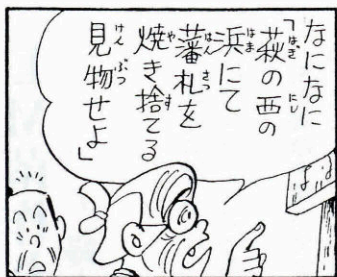 なになに
「萩の西の
浜にて
藩札を
焼き捨てる
見物せよ」